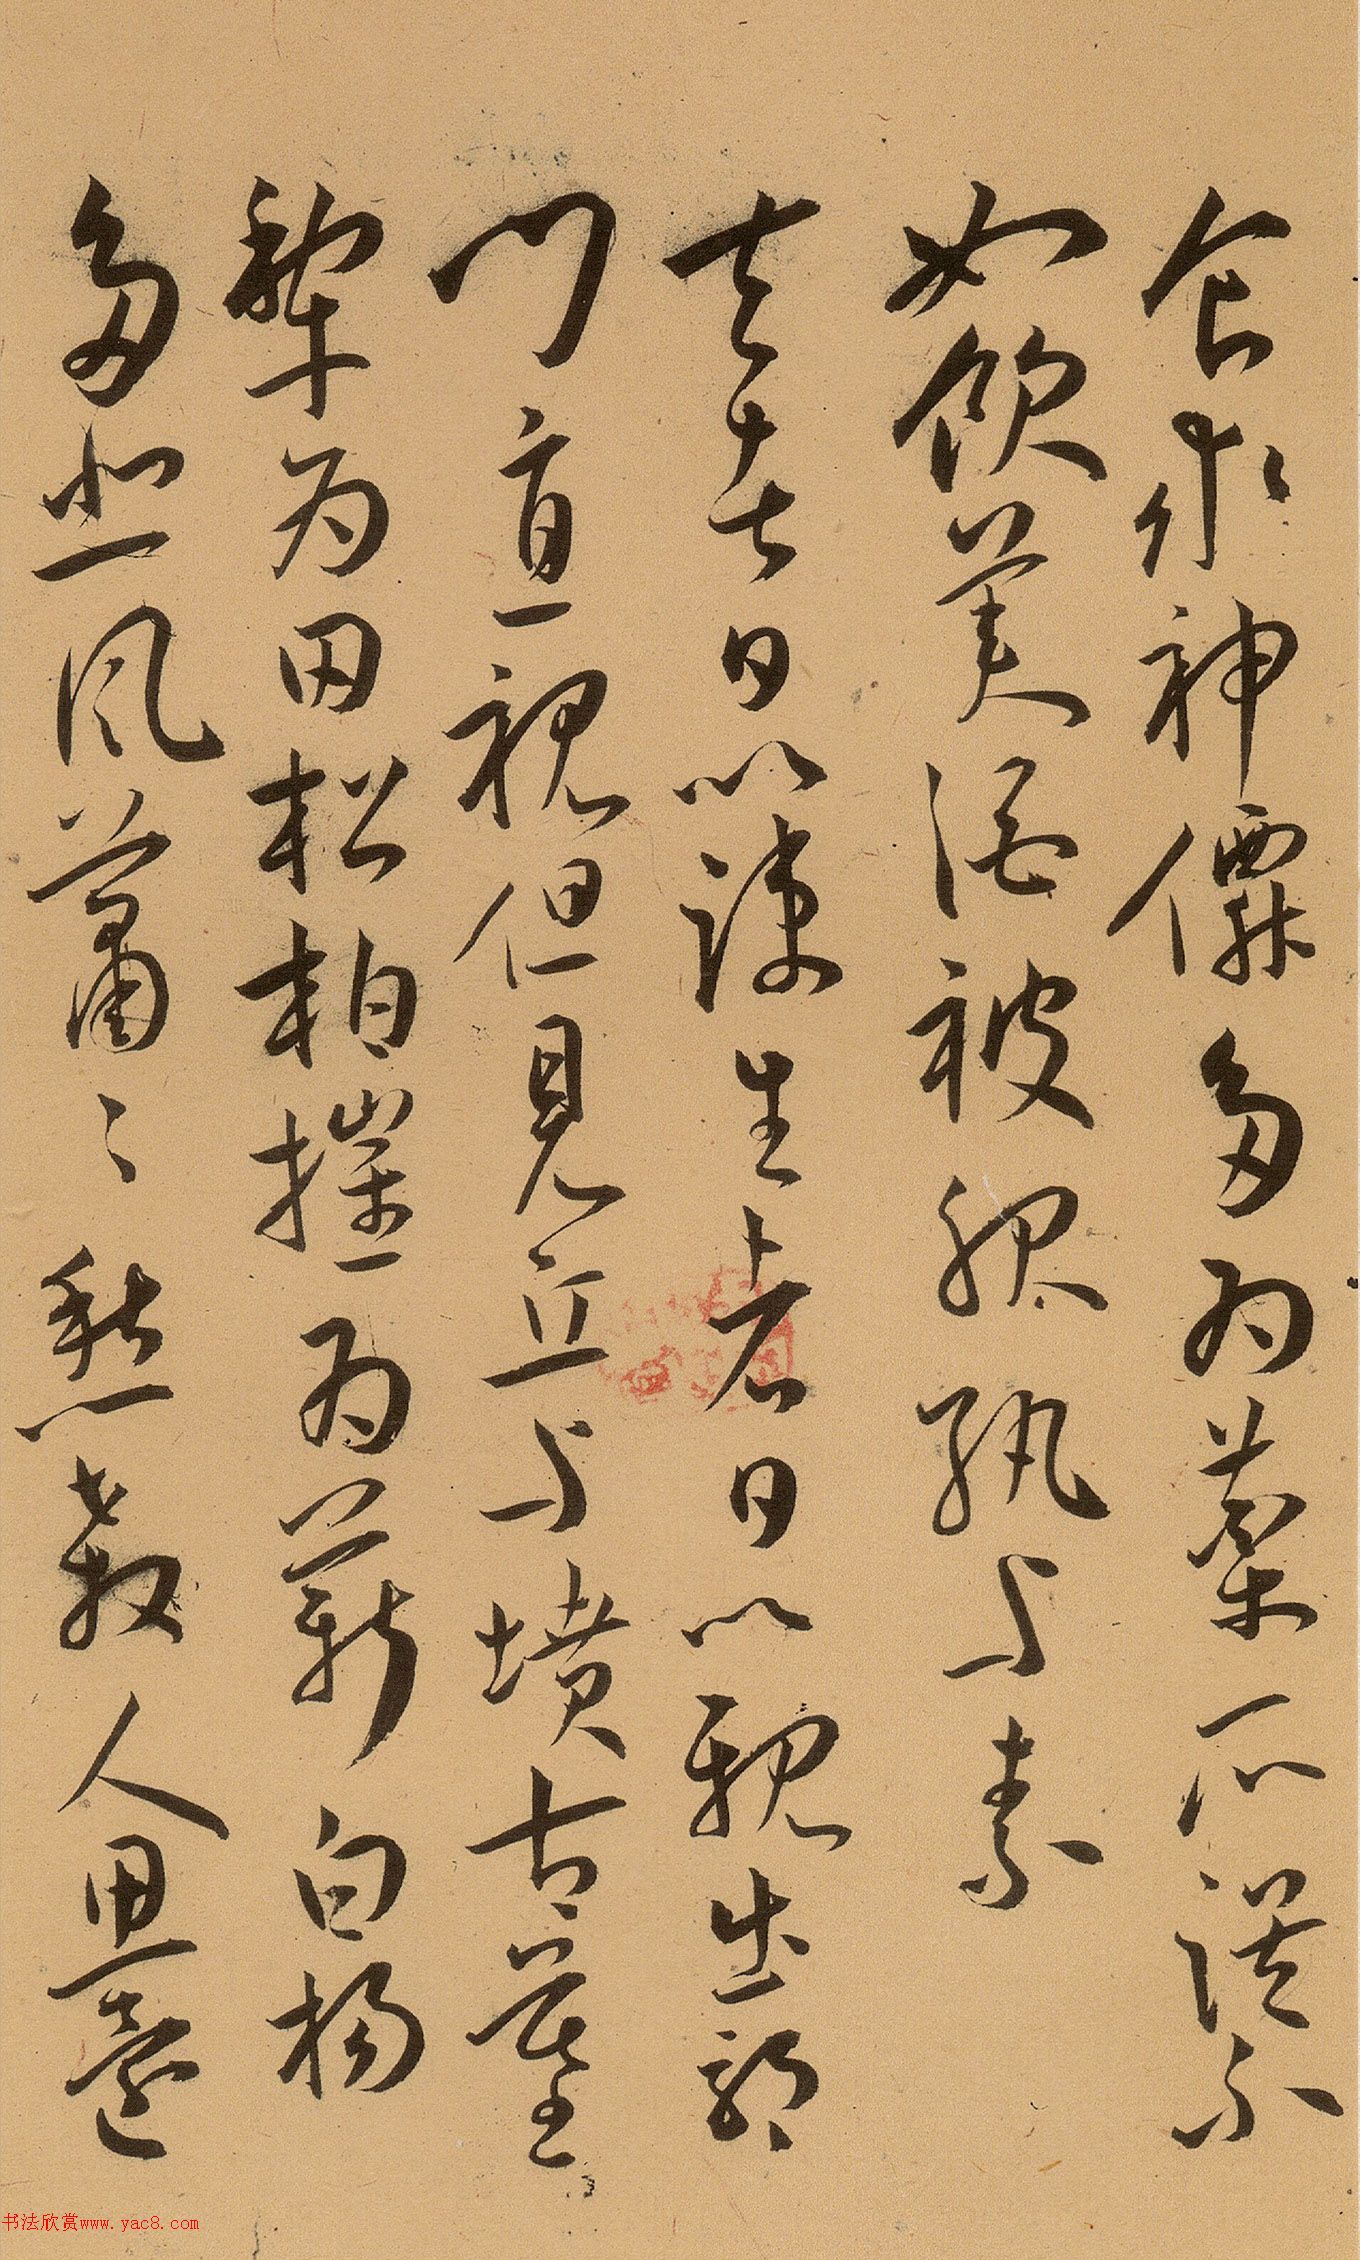 食求神僊多為藥所誤不
如飲美酒被服紈與素
去者日以疎生者日以親出郭
門直視但見丘與墳古墓
犂為田松柏摧為薪白楊
多悲風蕭〻愁殺人思還
书法欣赏www.yac8.com